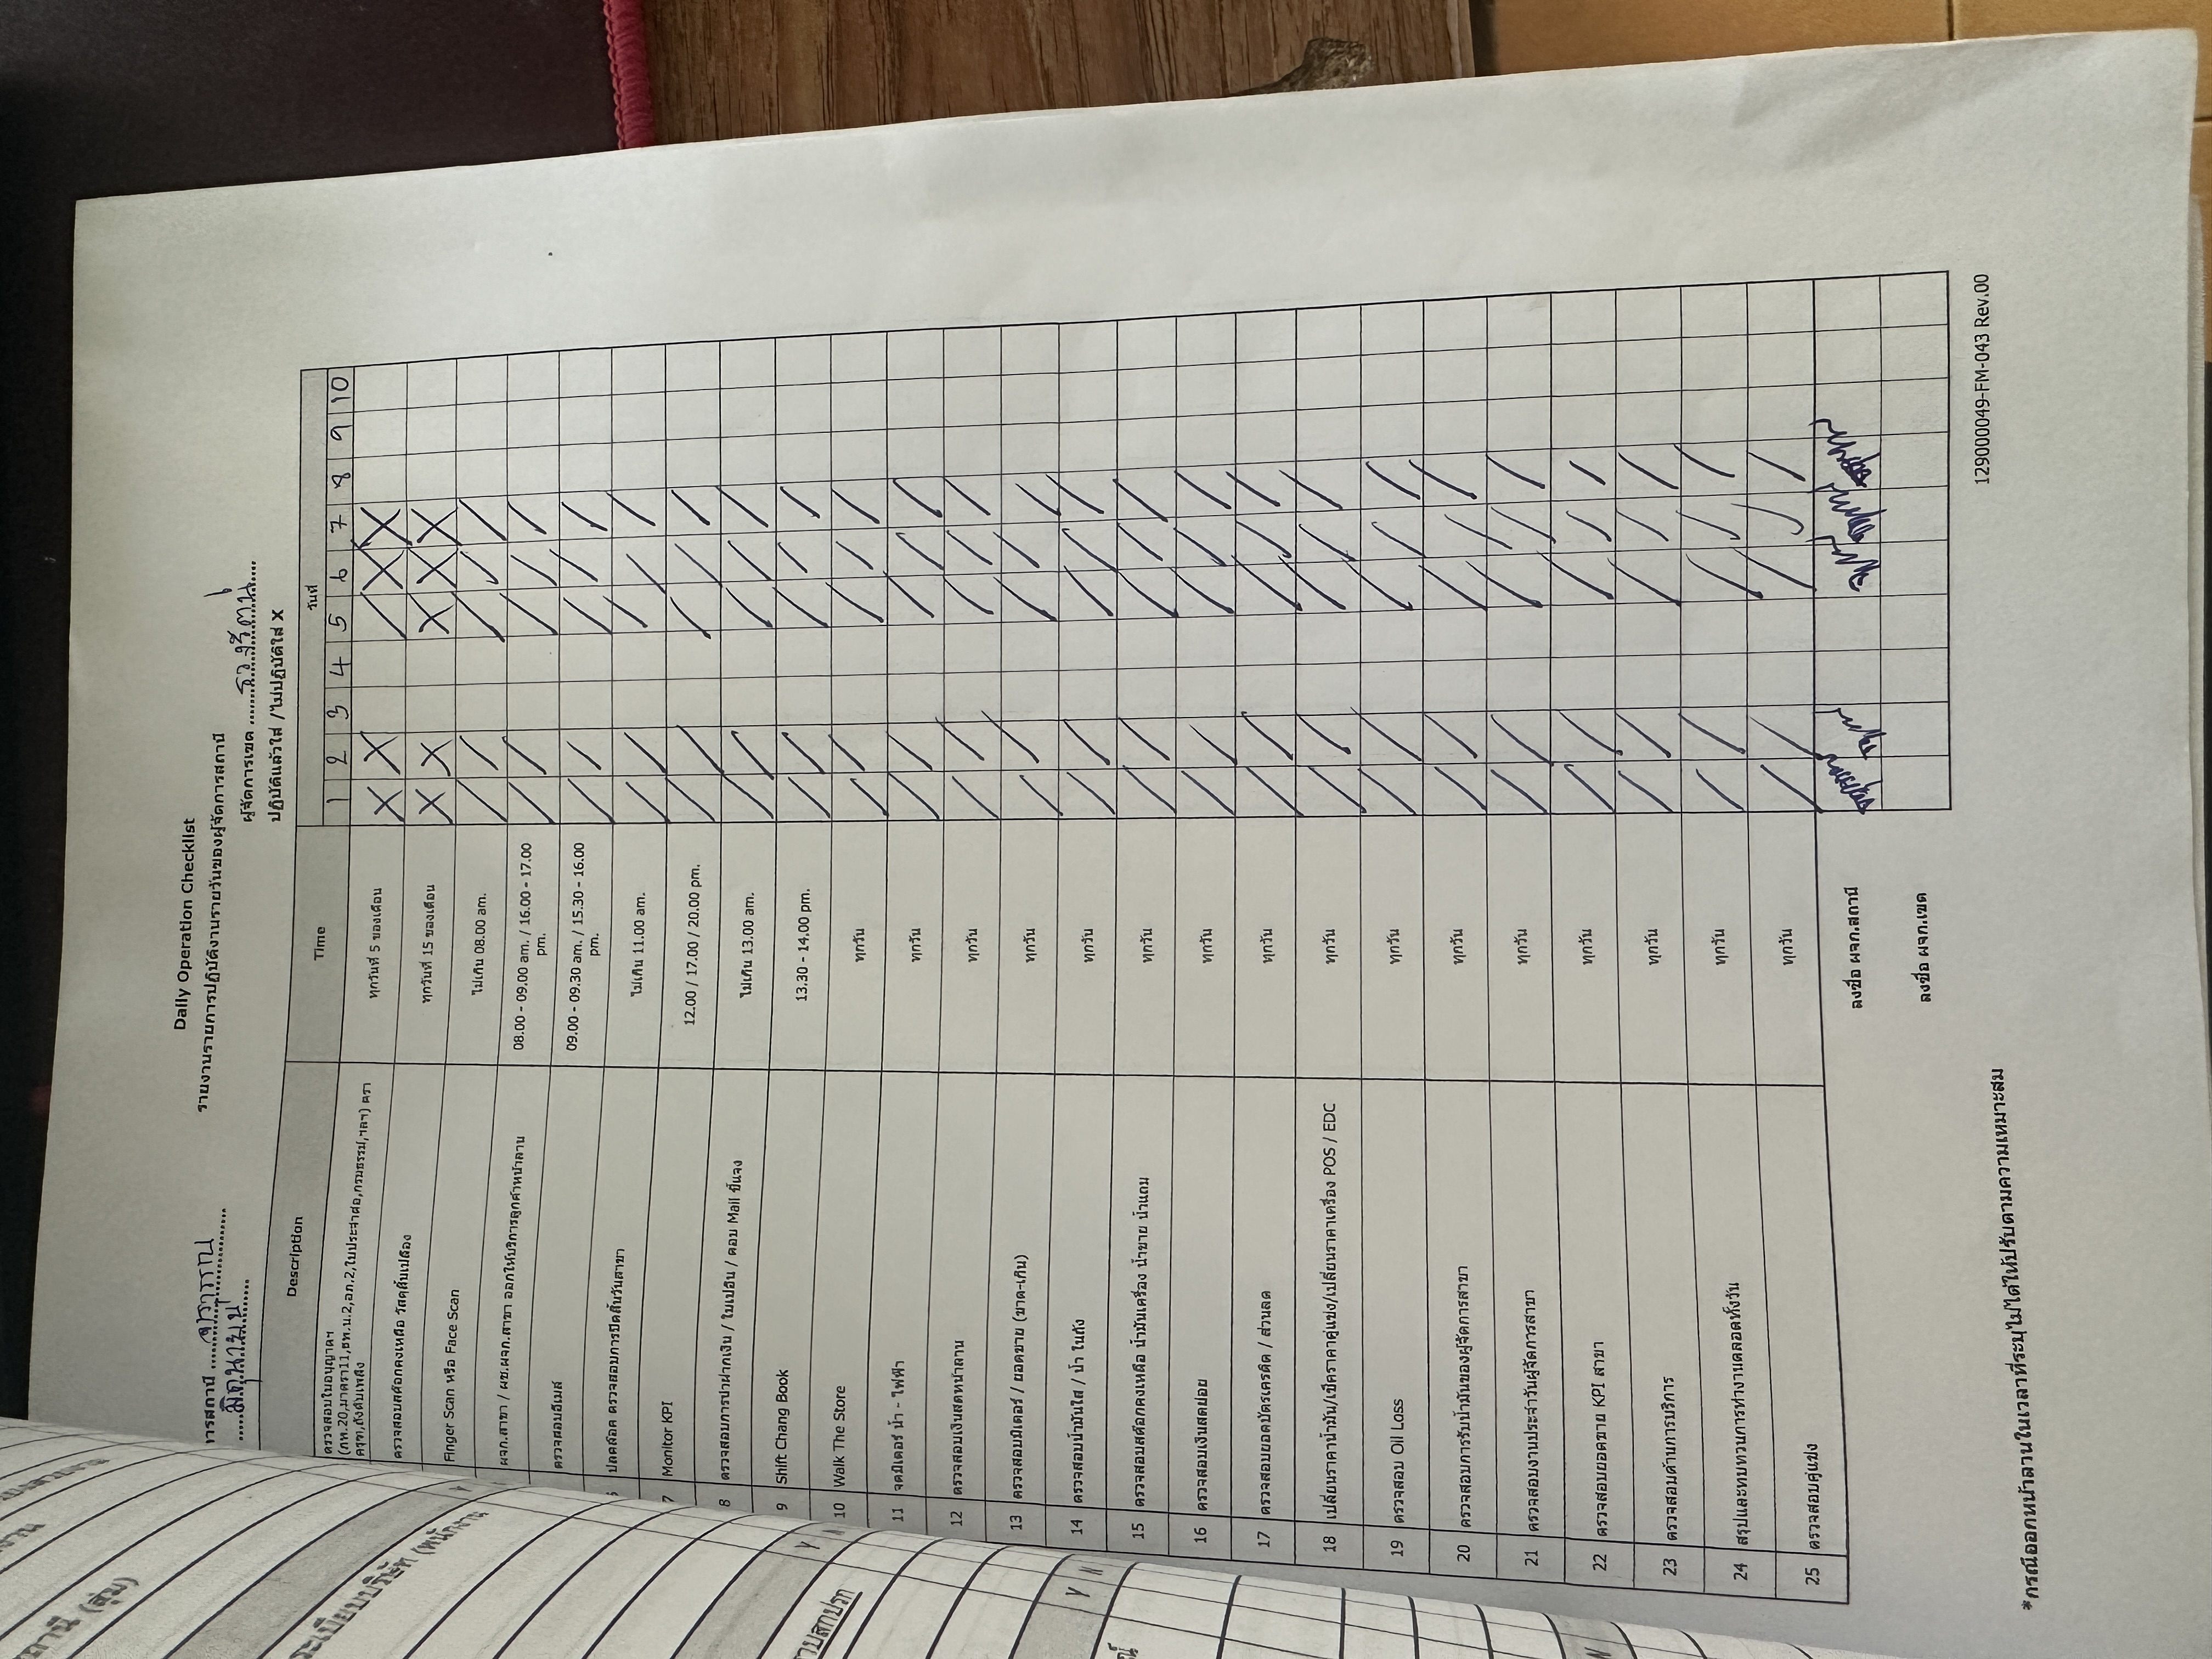 Daily Operation Checklist
รายงานรายการปฏิบัติงานรายวันของผู้จัดการสถานี
การสถานี
มิถุนายน
ผู้จัดการเขต
ปฏิบัติแล้วใส่ /ไม่ปฏิบัติใส่ X
Description Time วันที่
1 2 3 4 5 6 7 8 9 10
ตรวจสอบใบอนุญาตฯ (ภพ.20,มาตรา11,ธพ.น.2,อภ.2,ใบประจำต่อ,กรมธรรม์,ฯลฯ) ตรา ครุฑ,ถังดับเพลิง ทุกวันที่ 5 ของเดือน X X / X X
ตรวจสอบสต๊อกคงเหลือ วัสดุสิ้นเปลือง ทุกวันที่ 15 ของเดือน X X X X X
Finger Scan หรือ Face Scan ไม่เกิน 08.00 am. / / / / /
ผจก.สาขา / ผช.ผจก.สาขา ออกให้บริการลูกค้าหน้าลาน 08.00 - 09.00 am. / 16.00 - 17.00 pm. / / / / /
ตรวจสอบอีเมล์ 09.00 - 09.30 am. / 15.30 - 16.00 pm. / / / / /
ปลดล๊อค ตรวจสอบการปิดสิ้นวันสาขา ไม่เกิน 11.00 am. / / / / /
7 Monitor KPI 12.00 / 17.00 / 20.00 pm. / / / / /
8 ตรวจสอบการนำฝากเงิน / ใบเปอิน / ตอบ Mail ชี้แจง ไม่เกิน 13.00 am. / / / / /
9 Shift Chang Book 13.30 - 14.00 pm. / / / / /
10 Walk The Store ทุกวัน / / / / /
11 จดมิเตอร์ น้ำ - ไฟฟ้า ทุกวัน / / / / /
12 ตรวจสอบเงินสดหน้าลาน ทุกวัน / / / / /
13 ตรวจสอบมิเตอร์ / ยอดขาย (ขาด-เกิน) ทุกวัน / / / / /
14 ตรวจสอบน้ำมันใส / น้ำ ในถัง ทุกวัน / / / / /
15 ตรวจสอบสต๊อกคงเหลือ น้ำมันเครื่อง น้ำขาย น้ำแถม ทุกวัน / / / / /
16 ตรวจสอบเงินสดย่อย ทุกวัน / / / / /
17 ตรวจสอบยอดบัตรเครดิต / ส่วนลด ทุกวัน / / / / /
18 เปลี่ยนราคาน้ำมัน/เช็คราคาคู่แข่ง/เปลี่ยนราคาเครื่อง POS / EDC ทุกวัน / / / / /
19 ตรวจสอบ Oil Loss ทุกวัน / / / / /
20 ตรวจสอบการรับน้ำมันของผู้จัดการสาขา ทุกวัน / / / / /
21 ตรวจสอบงานประจำวันผู้จัดการสาขา ทุกวัน / / / / /
22 ตรวจสอบยอดขาย KPI สาขา ทุกวัน / / / / /
23 ตรวจสอบด้านการบริการ ทุกวัน / / / / /
24 สรุปและทบทวนการทำงานตลอดทั้งวัน ทุกวัน / / / / /
25 ตรวจสอบคู่แข่ง ทุกวัน / / / / /
ลงชื่อ ผจก.สถานี
ลงชื่อ ผจก.เขต
129000049-FM-043 Rev.00
*กรณีออกหน้าลานในเวลาที่ระบุไม่ได้ให้ปรับตามความเหมาะสม